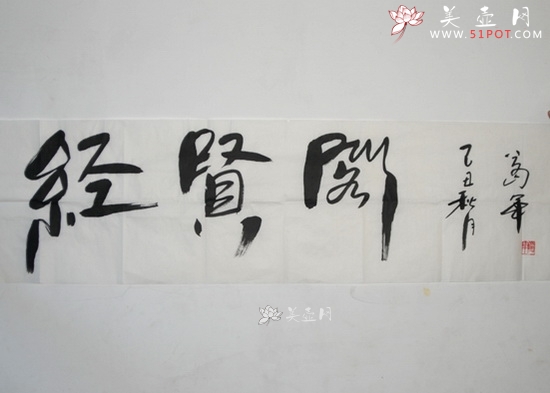 美壶网
WWW.51POT.COM
経賢閣
己丑秋月
美壶网